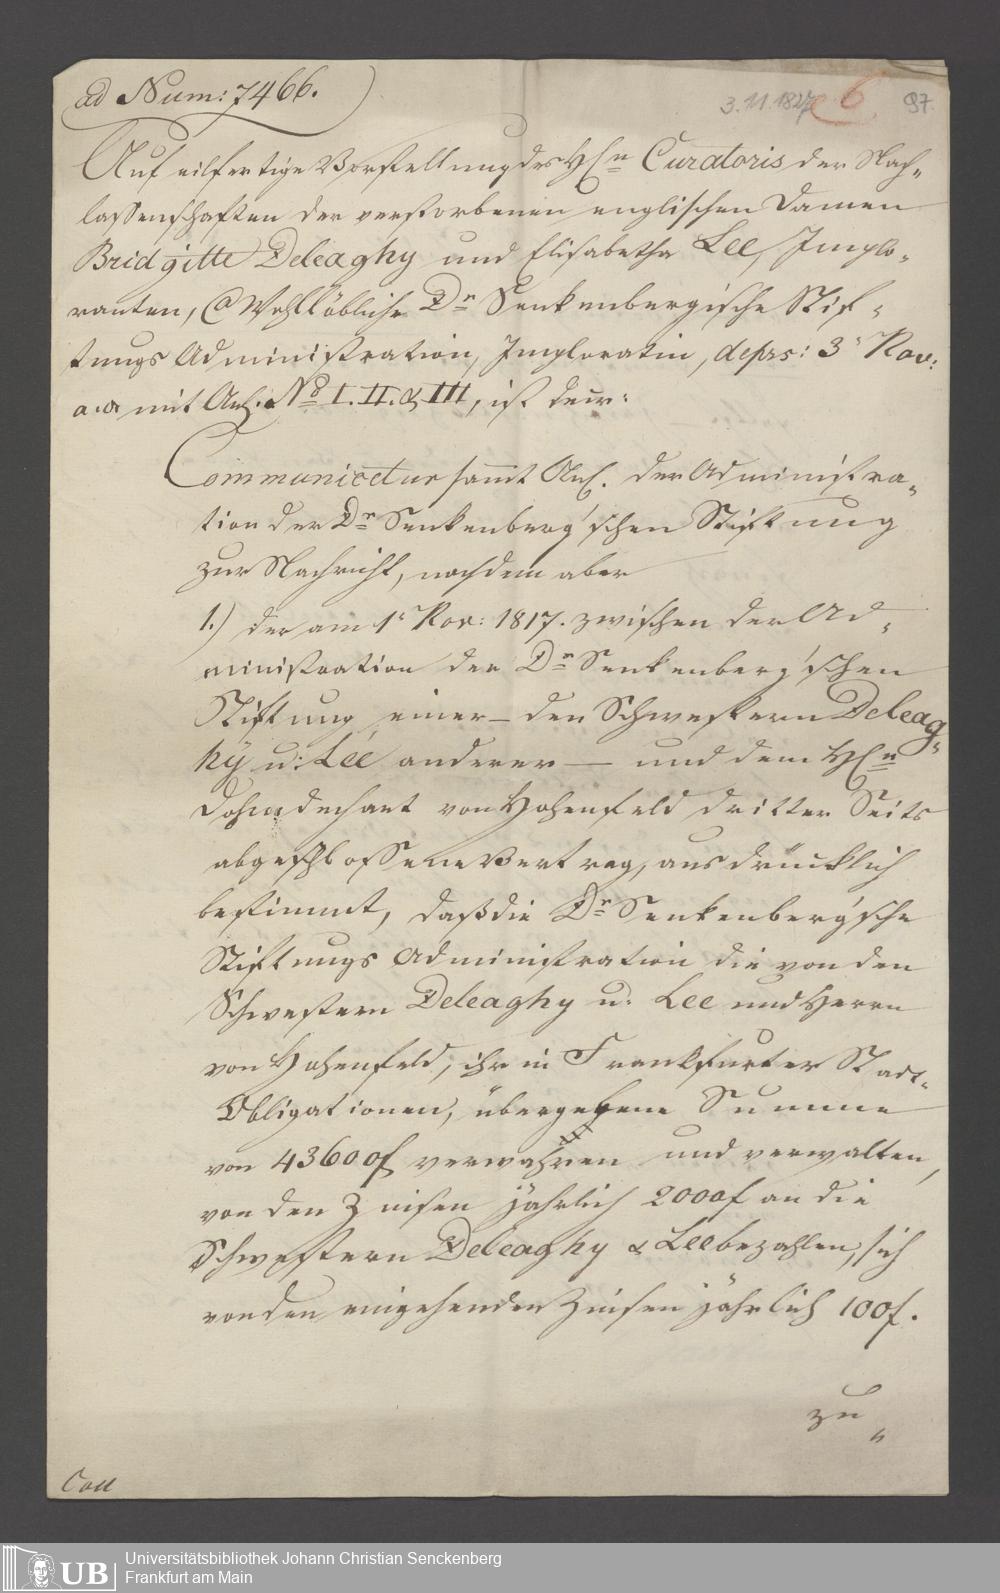 ad Num: 7466.
3.11.1827
6
97.
Auf eilfertige Vorstellung des H̄n Curatoris der Nach-
lassenschaften der verstorbenen englischen Damen
Bridgitte Deleaghy und Elisabetha Lee, Implo-
ranten, C Wohllöbliche Dr Senkenbergische Stif-
tungs Administration, Imploratin, deprs: 3r Nov:
a. a mit Anl. No I. II. & III, ist decr:
Communicetur sammt Anl. der Administra-
tion der Dr Senkenberg'schen Stiftung
zur Nachricht, nachdem aber
1.) der am 1r Nov: 1817. zwischen der Ad-
ministration der Dr Senkenberg'schen
Stiftung einer – den Schwestern Deleag-
hy u: Lee anderer – und dem H̄n
Dohmdechant von Hohenfeld dritter Seits
abgeschlossene Vertrag, ausdrücklich
bestimmt, daß die Dr Senkenberg'sche
Stiftungs Administration die von den
Schwestern Deleaghy u. Lee und Herrn
von Hohenfeld, ihr in Frankfurter Stadt-
Obligationen, übergebene Summe
von 43600f verwahren und verwalten,
von den Zinsen jährlich 2000f an die
Schwestern Deleaghy & Lee bezahlen, sich
von den eingehenden Zinsen jährlich 100f.
zu
Coll
UB
Universitätsbibliothek Johann Christian Senckenberg
Frankfurt am Main